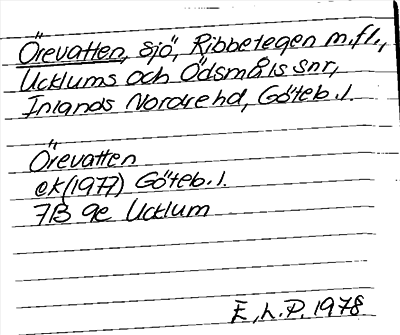 Örevatten, sjö, Ribbetegen m.fl.,
Ucklums och Ödsmåls snr,
Inlands Nordre hd, Göteb.l.
Örevatten
ek (1977) Göteb.l.
7B 9e Ucklum
E.h.P. 1978